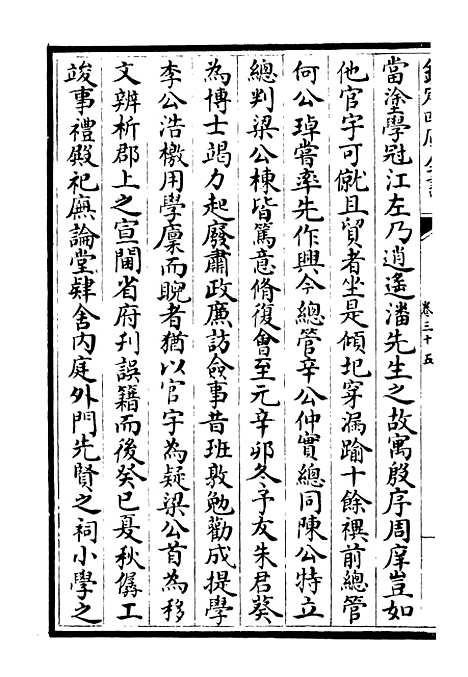 欽定四庫全書
卷三十五
當塗學冠江左乃逍遙潘先生之故寓殷序周庠豈如
他官字可僦且貿者坐是傾圯穿漏踰十餘禩前總管
何公琸嘗率先作興今總管辛公仲實總同陳公特立
總判梁公棟皆篤意脩復會至元辛卯冬予友朱君葵
為博士竭力起廢肅政廉訪僉事昔班敦勉勸成提學
李公浩檄用學廩而睨者猶以官字為疑梁公首為移
文辨析郡上之宣閫省府刋誤籍而後癸巳夏秋僝工
竣事禮殿祀廡論堂肄舍内庭外門先賢之祠小學之